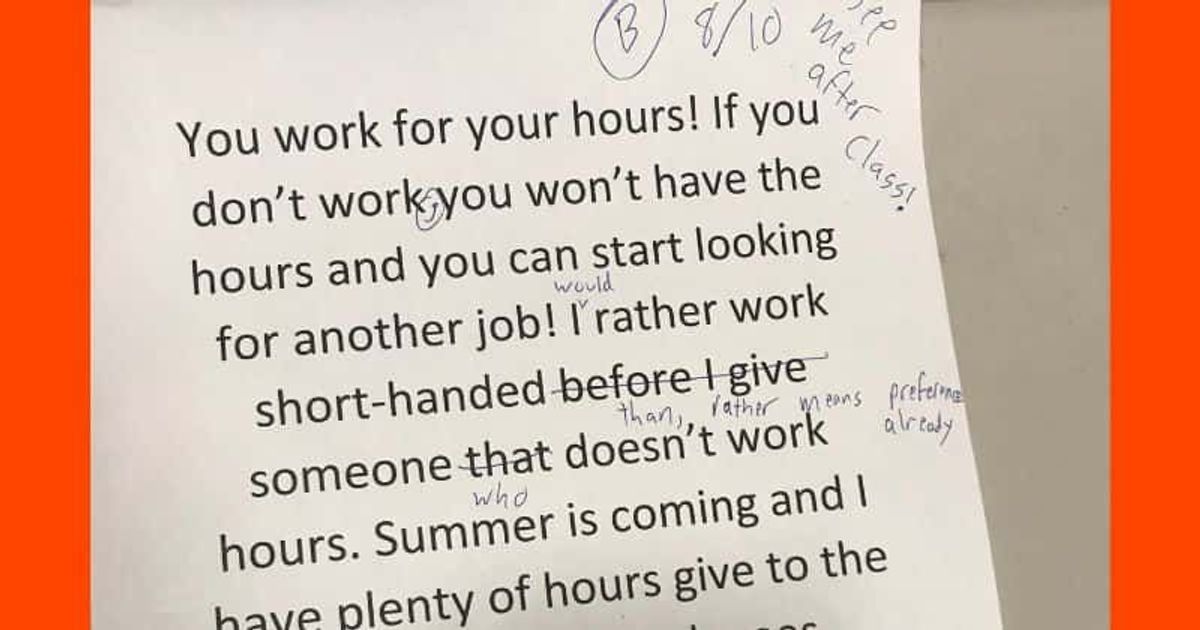 B 8/10 see
me
after
class!
You work for your hours! If you
don't work, you won't have the
hours and you can start looking
would
for another job! I rather work
short-handed before I give
than, rather means preference
already
someone that doesn't work
who
hours. Summer is coming and I
have plenty of hours give to the